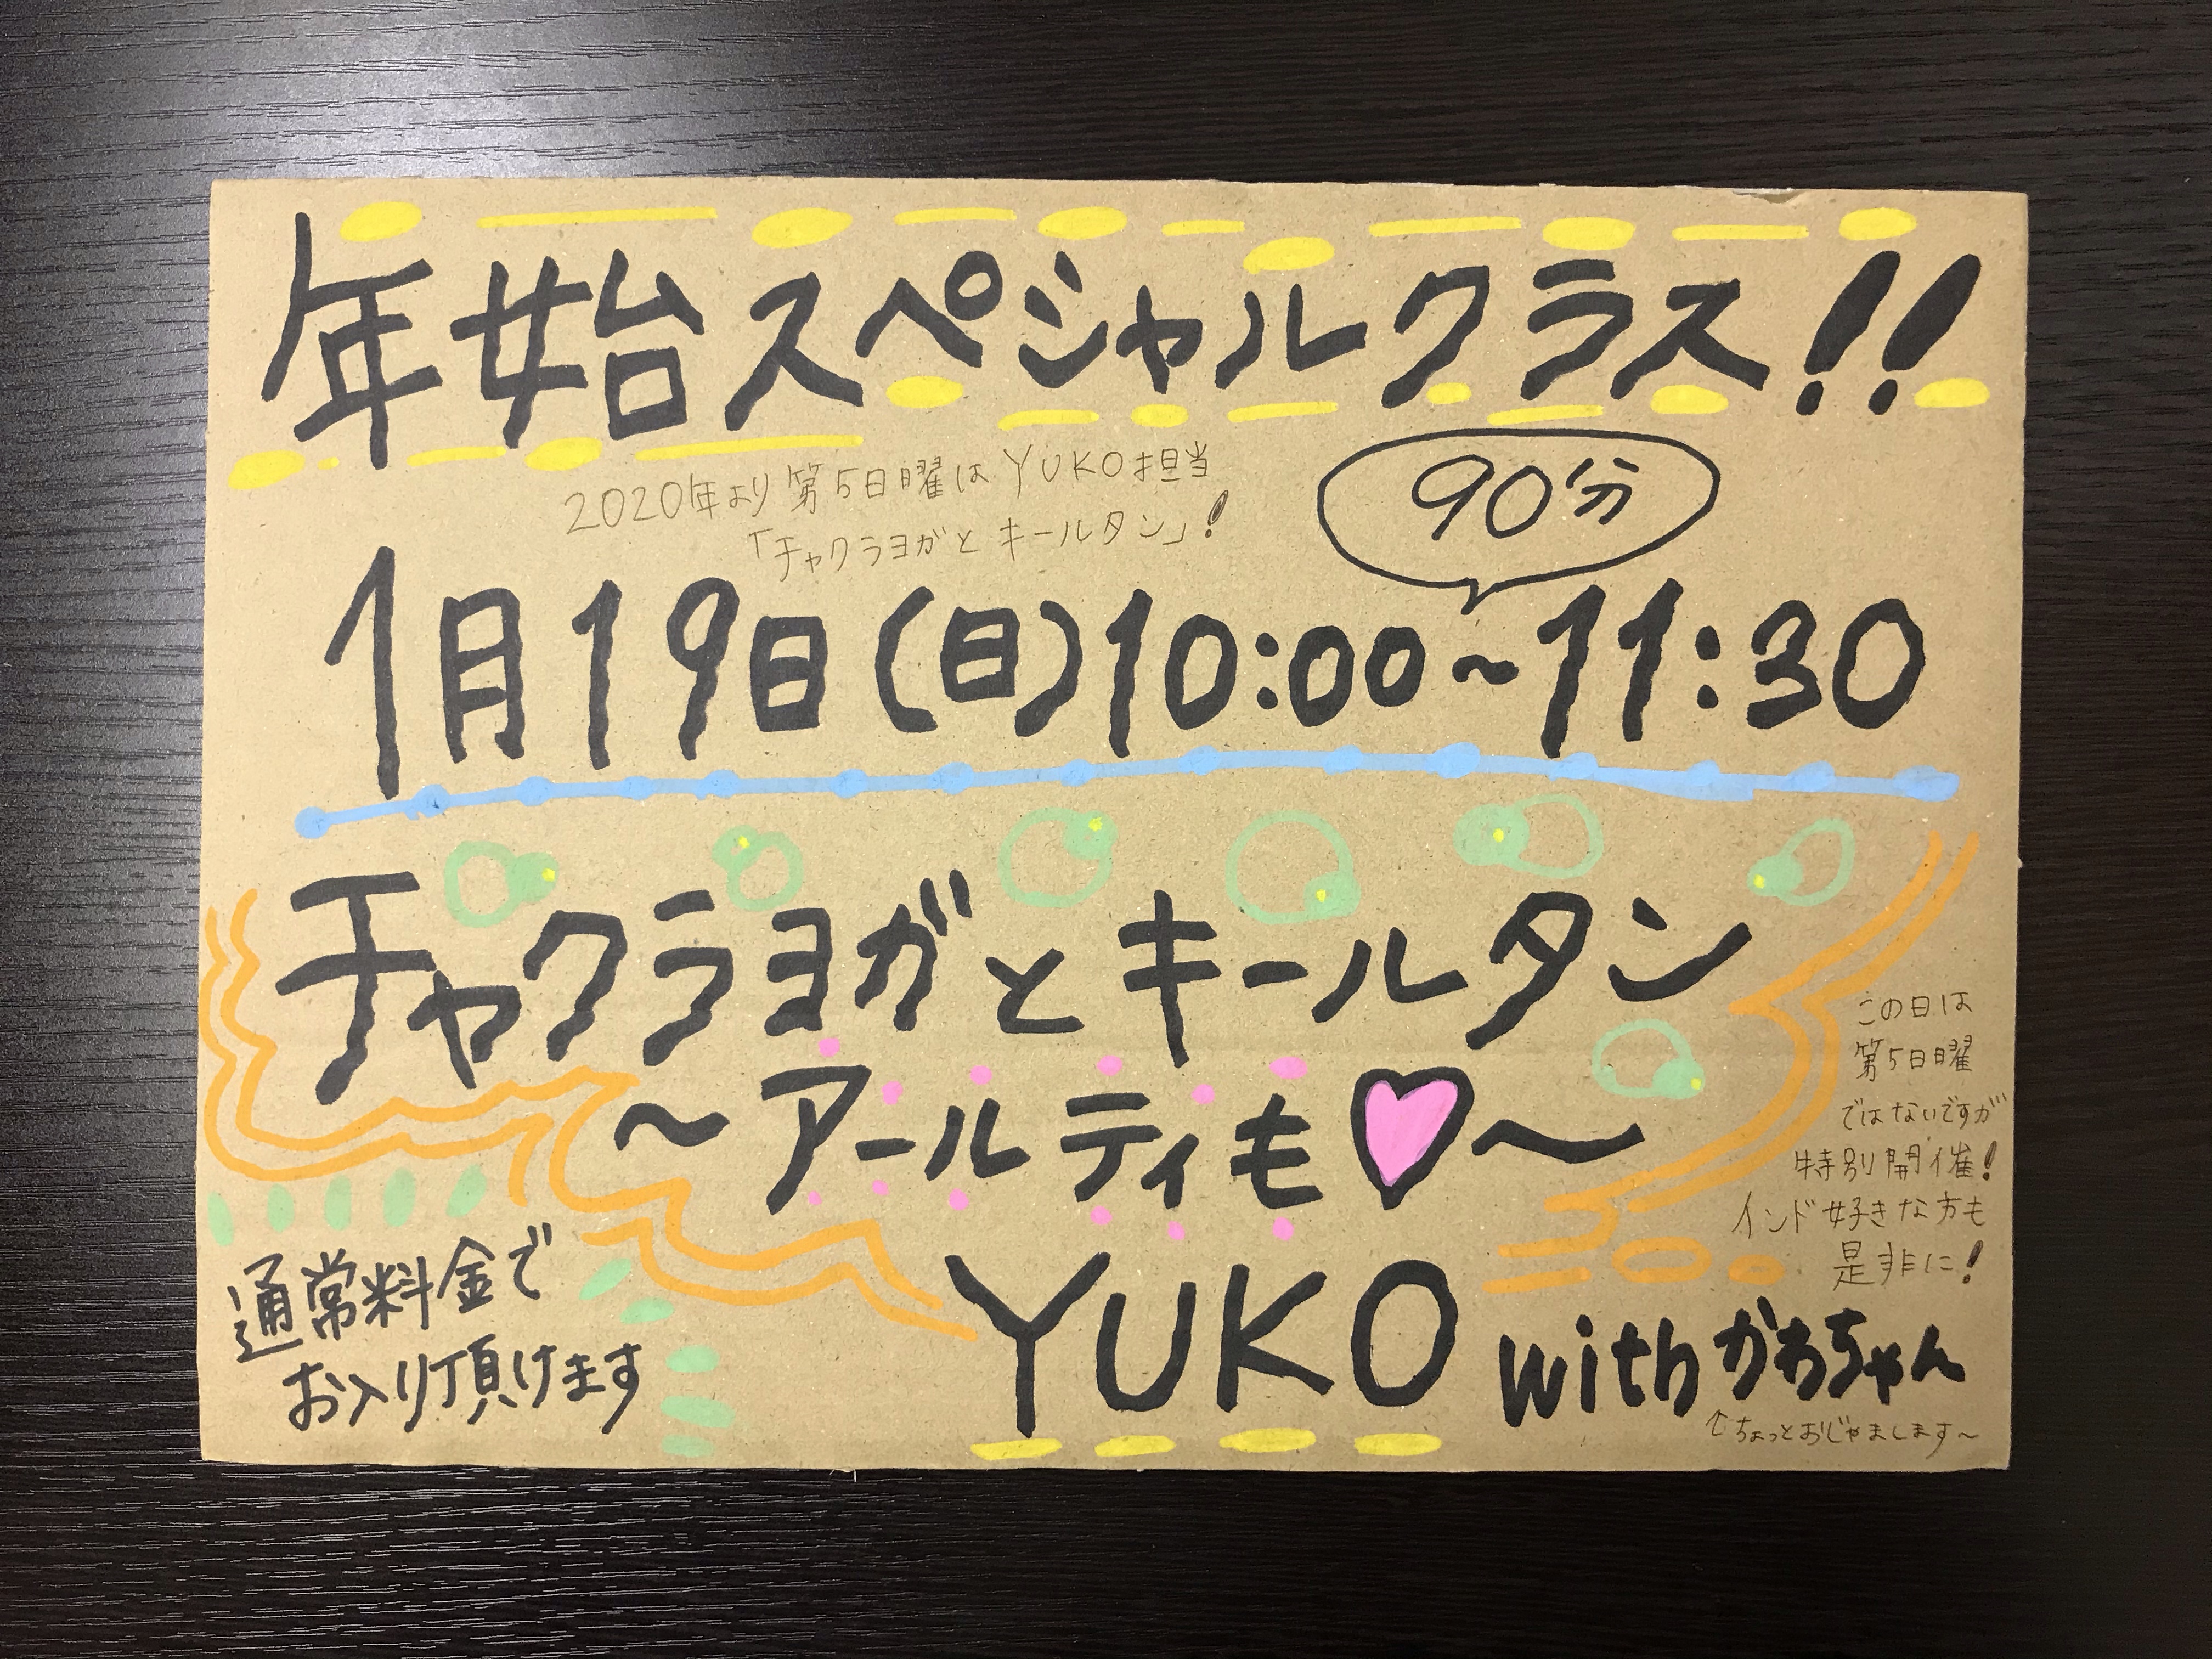 年始スペシャルクラス!!
2020年より第5日曜はYUKO担当
「チャクラヨガとキールタン」!
90分
1月19日(日)10:00~11:30
チャクラヨガとキールタン
~アールティも♡~
この日は
第5日曜
ではないですが
特別開催!
インド好きな方も
是非に!
通常料金で
お入り頂けます
YUKO withかわちゃん
↑ちょっとおじゃまします~